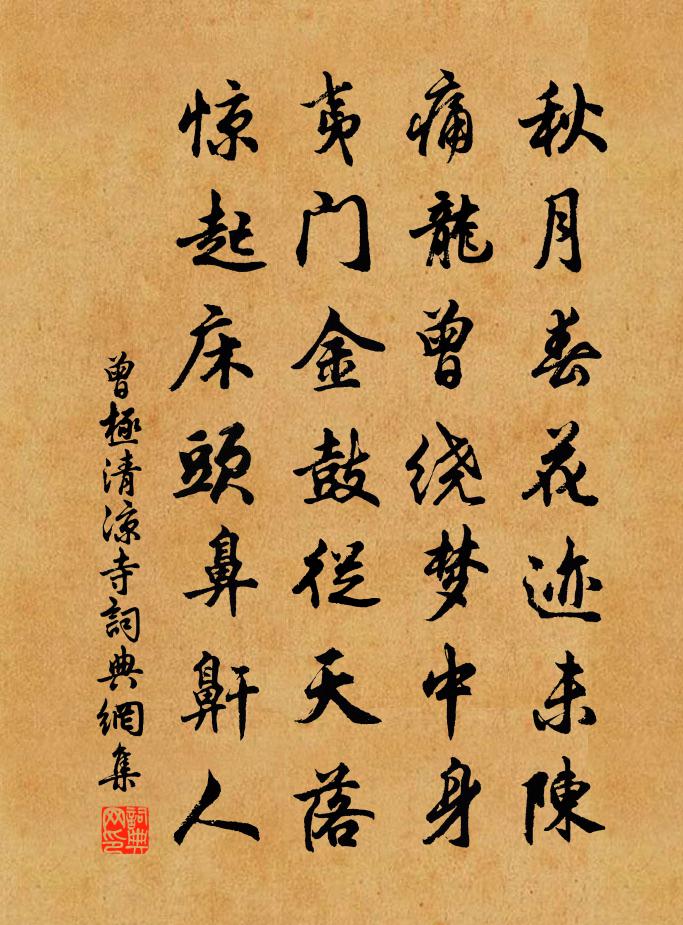 秋月春花迹未陳
痛龍曾绕梦中身
夷门金鼓從天落
惊起床頭鼻鼾人
曾極清凉寺詞典網集
詞典网印